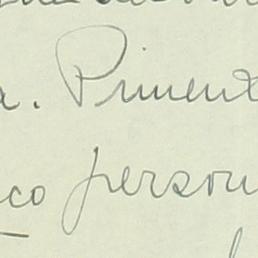 a. Piment
co person